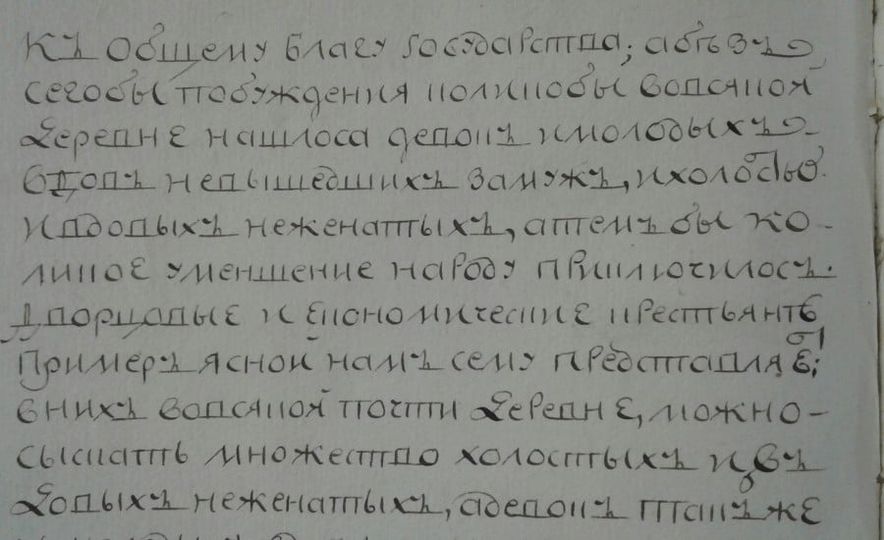 Къ общему благу государства; абъ зъ
сегобы побуждения коликобы вовсякой
деревне нашлося девокъ имолодыхъ
вдовъ невышедшихъ замужъ, ихолосты
ивдовыхъ неженатыхъ, атемъ бы ко-
ликое уменшение народу приключилось.
Дворцовые и економические крестьянѣ
Примеръ ясной намъ сему представляе;
внихъ вовсякой почти деревне, можно-
сыскать множество холостыхъ ив
довыхъ неженатыхъ, адевокъ такъ же